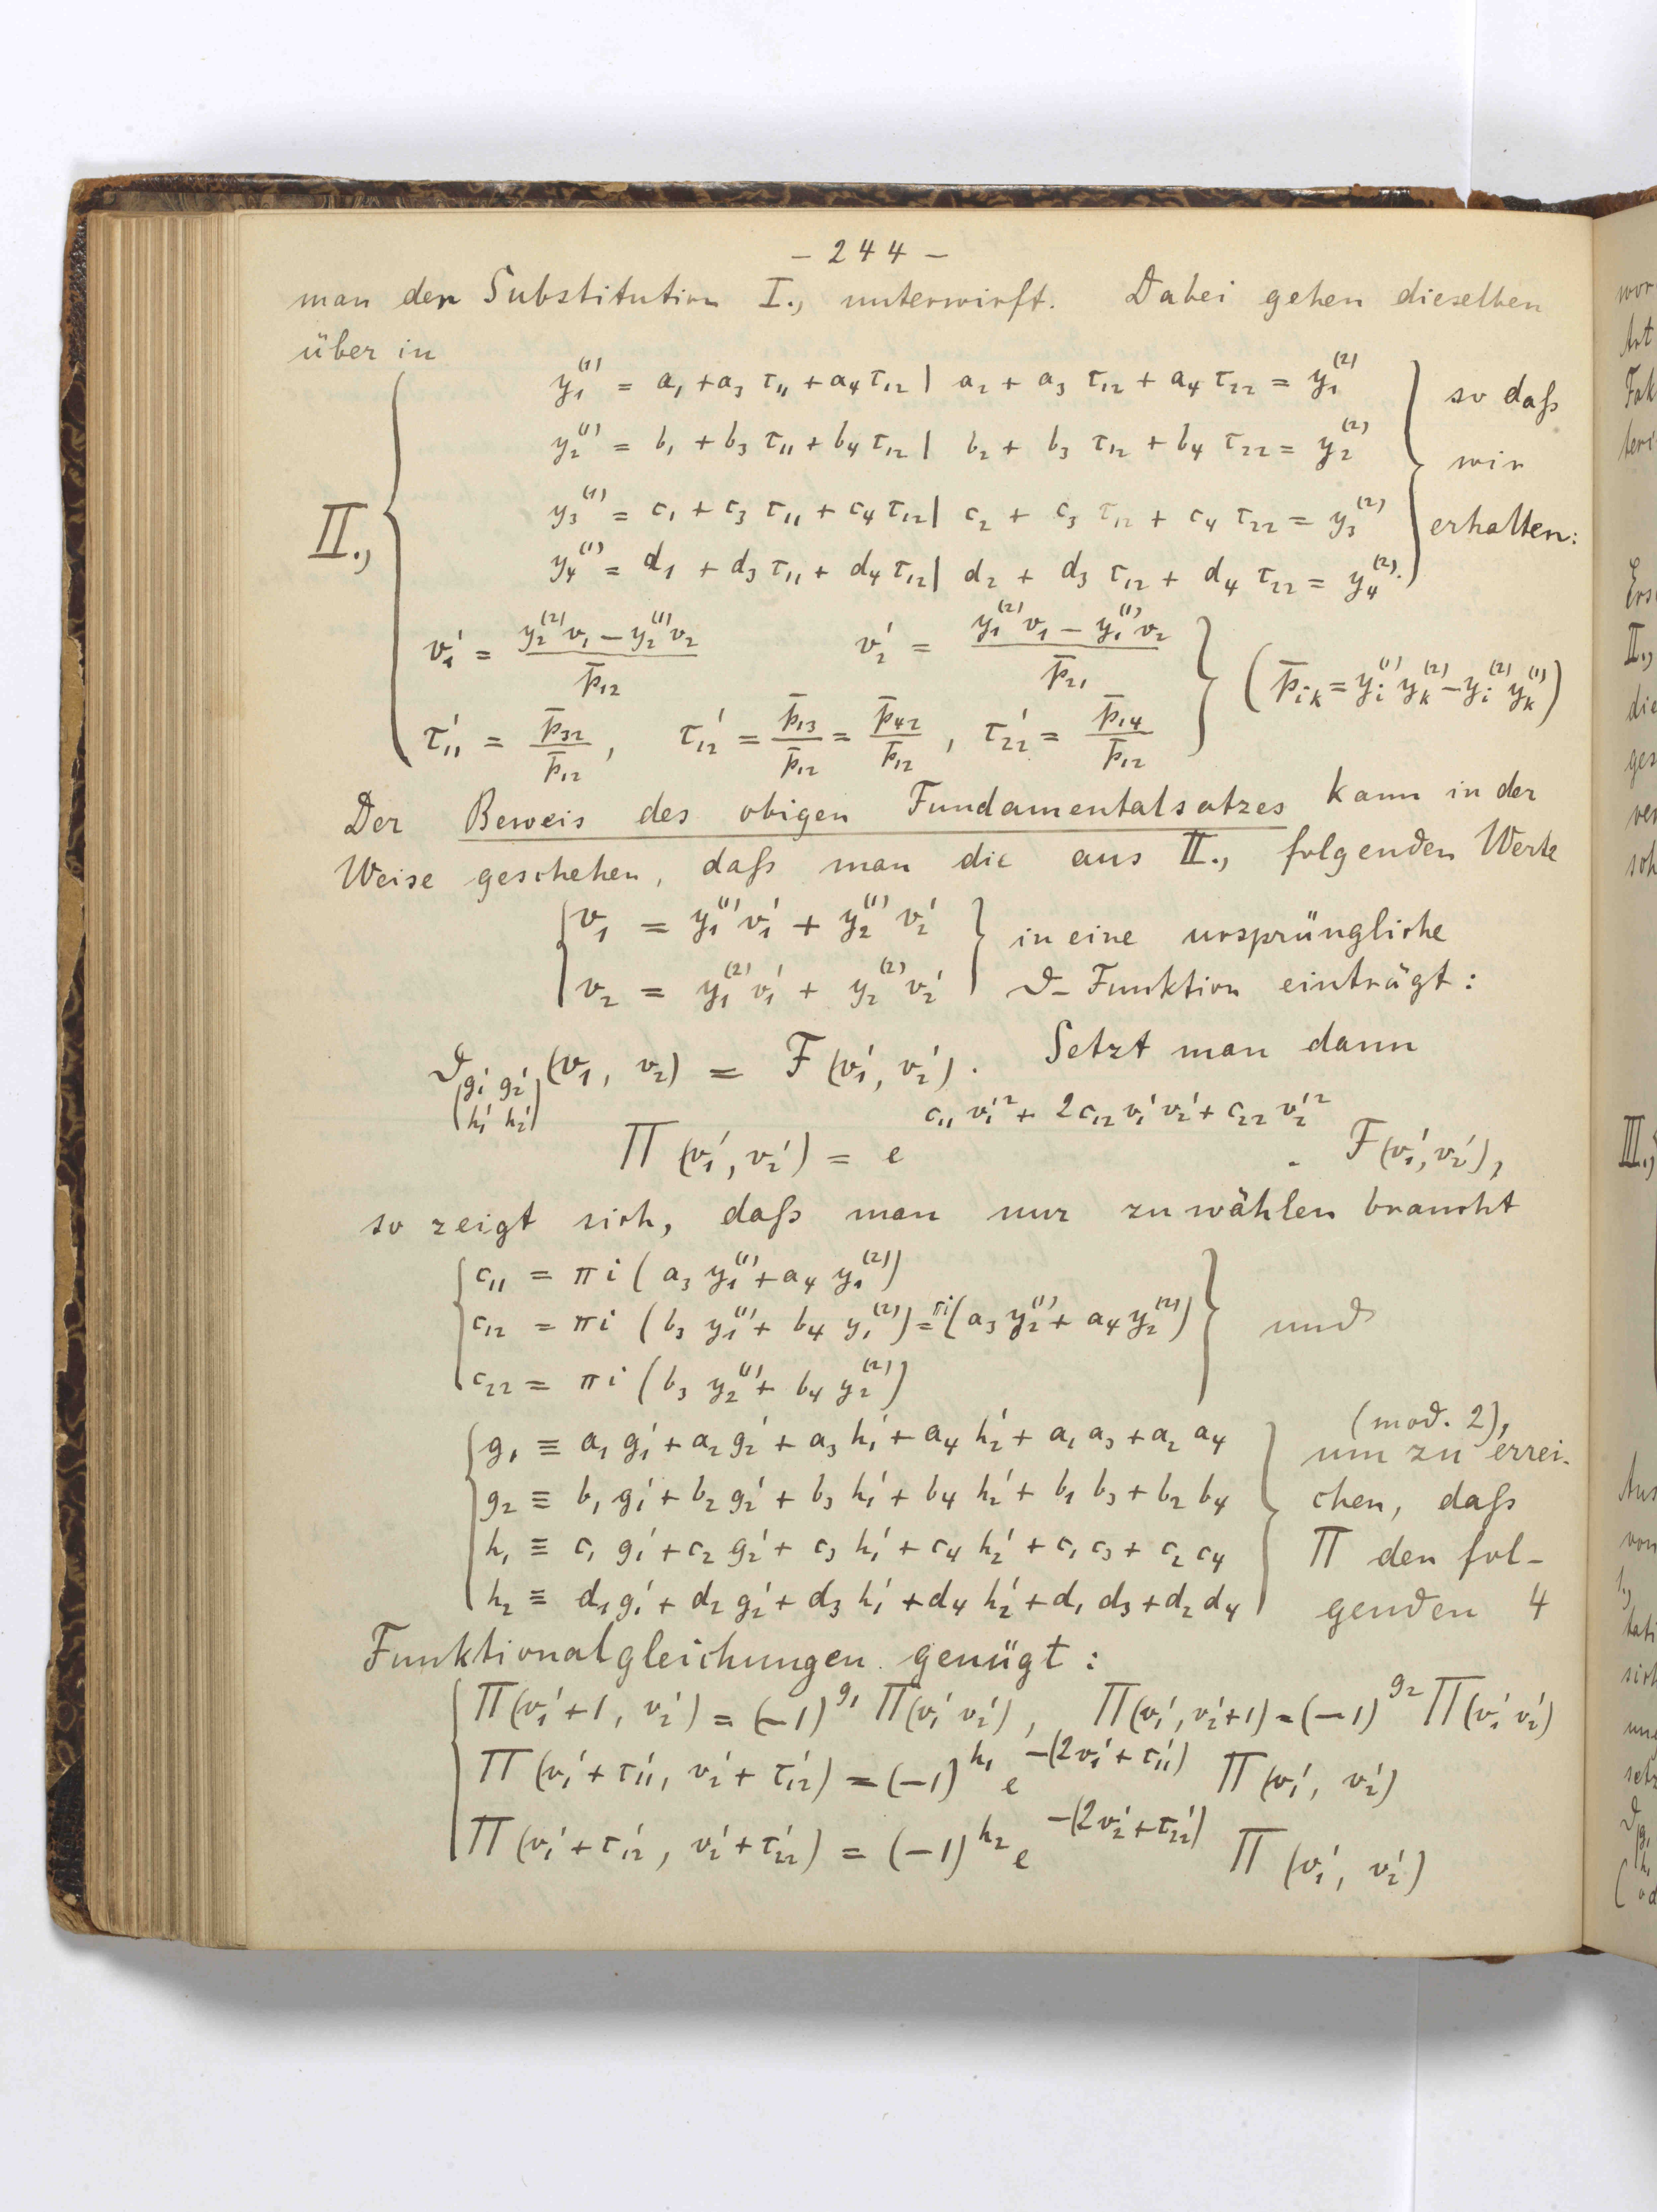 – 244 –
man der Substitution I., unterwirft. Dabei gehen dieselben
über in
y₁⁽¹⁾ = a₁ + a₃ τ₁₁ + a₄ τ₁₂ | a₂ + a₃ τ₁₂ + a₄ τ₂₂ = y₁⁽²⁾
y₂⁽¹⁾ = b₁ + b₃ τ₁₁ + b₄ τ₁₂ | b₂ + b₃ τ₁₂ + b₄ τ₂₂ = y₂⁽²⁾
y₃⁽¹⁾ = c₁ + c₃ τ₁₁ + c₄ τ₁₂ | c₂ + c₃ τ₁₂ + c₄ τ₂₂ = y₃⁽²⁾
y₄⁽¹⁾ = d₁ + d₃ τ₁₁ + d₄ τ₁₂ | d₂ + d₃ τ₁₂ + d₄ τ₂₂ = y₄⁽²⁾.
so daß
wir
erhalten:
II.,
v₁' = (y₂⁽²⁾v₁ – y₂⁽¹⁾v₂) / p̄₁₂ v₂' = (y₁⁽²⁾v₁ – y₁⁽¹⁾v₂) / p̄₂₁ (p̄ᵢₖ = yᵢ⁽¹⁾ yₖ⁽²⁾ – yᵢ⁽²⁾ yₖ⁽¹⁾)
τ₁₁' = p̄₃₂ / p̄₁₂, τ₁₂' = p̄₁₃ / p̄₁₂ = p̄₄₂ / p̄₁₂, τ₂₂' = p̄₁₄ / p̄₁₂
Der Beweis des obigen Fundamentalsatzes kann in der
Weise geschehen, daß man die aus II., folgenden Werte
v₁ = y₁⁽¹⁾ v₁' + y₂⁽¹⁾ v₂' in eine ursprüngliche
v₂ = y₁⁽²⁾ v₁' + y₂⁽²⁾ v₂' ϑ– Funktion einträgt:
ϑ|g₁' g₂'| (v₁, v₂) = F (v₁', v₂'). Setzt man dann
|h₁' h₂'|
c₁₁ v₁'² + 2c₁₂ v₁' v₂' + c₂₂ v₂'²
Π (v₁', v₂') = e . F(v₁', v₂'),
so zeigt sich, daß man nur zu wählen braucht
c₁₁ = πi (a₃ y₁⁽¹⁾ + a₄ y₁⁽²⁾)
c₁₂ = πi (b₃ y₁⁽¹⁾ + b₄ y₁⁽²⁾) = πi (a₃ y₂⁽¹⁾ + a₄ y₂⁽²⁾) und
c₂₂ = πi (b₃ y₂⁽¹⁾ + b₄ y₂⁽²⁾)
(mod. 2),
g₁ ≡ a₁ g₁' + a₂ g₂' + a₃ h₁' + a₄ h₂' + a₁ a₃ + a₂ a₄ um zu errei-
g₂ ≡ b₁ g₁' + b₂ g₂' + b₃ h₁' + b₄ h₂' + b₁ b₃ + b₂ b₄ chen, daß
h₁ ≡ c₁ g₁' + c₂ g₂' + c₃ h₁' + c₄ h₂' + c₁ c₃ + c₂ c₄ Π den fol-
h₂ ≡ d₁ g₁' + d₂ g₂' + d₃ h₁' + d₄ h₂' + d₁ d₃ + d₂ d₄ genden 4
Funktionalgleichungen genügt:
Π(v₁' + 1, v₂') = (–1)^g₁ Π(v₁' v₂'), Π(v₁', v₂' + 1) = (–1)^g₂ Π(v₁' v₂')
Π (v₁' + τ₁₁', v₂' + τ₁₂') = (–1)^h₁ e^–(2v₁' + τ₁₁') Π (v₁', v₂')
Π (v₁' + τ₁₂', v₂' + τ₂₂') = (–1)^h₂ e^–(2v₂' + τ₂₂') Π (v₁', v₂')